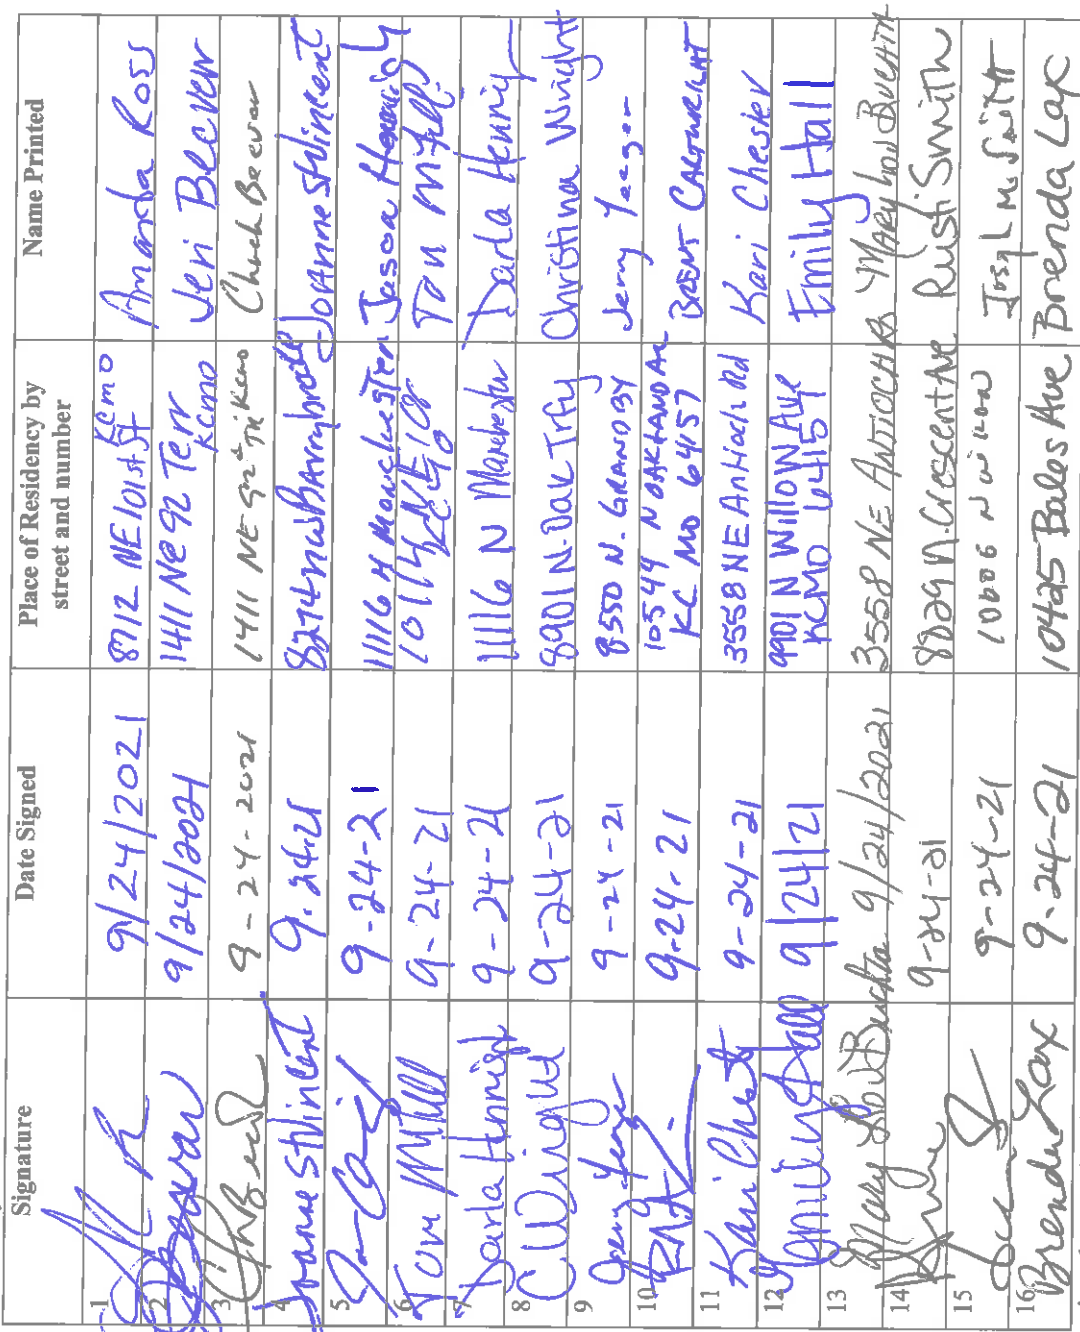 Signature Date Signed Place of Residency by street and number Name Printed
1 9/24/2021 8712 NE 101st St KCMO Amanda Ross
2 9/24/2021 1411 NE 92 Terr KCMO Jeri Beever
3 9-24-2021 1411 NE 92nd Tr KCMO Chuck Beever
4 Joanne StVincent 9.24.21 8274 NW Barrybrooke Joanne StVincent
5 9-24-21 11116 N Manchester Jason
6 Tom 9-24-21 Tom
7 Darla 9-24-21 11116 N Manchester Darla
8 C Wright 9-24-21 8901 N. Oak Trfy Christina Wright
9 Jerry Yeager 9-24-21 8550 N. GRANDBY Jerry Yeager
10 9-24-21 10549 N OAKLAND Ave KC MO 64157 BRENT CARTWRIGHT
11 Kari Chester 9-24-21 3558 NE Antioch Rd Kari Chester
12 Emily Hall 9/24/21 9901 N Willow Ave KCMO Emily Hall
13 Mary Lou Buchta 9/24/2021 3558 NE ANTIOCH Rd MARY LOU
14 9-24-21 8829 N. Crescent Ave Rusti Smith
15 9-24-21 10006 N
16 Brenda Lax 9-24-21 10425 Bales Ave Brenda Lax